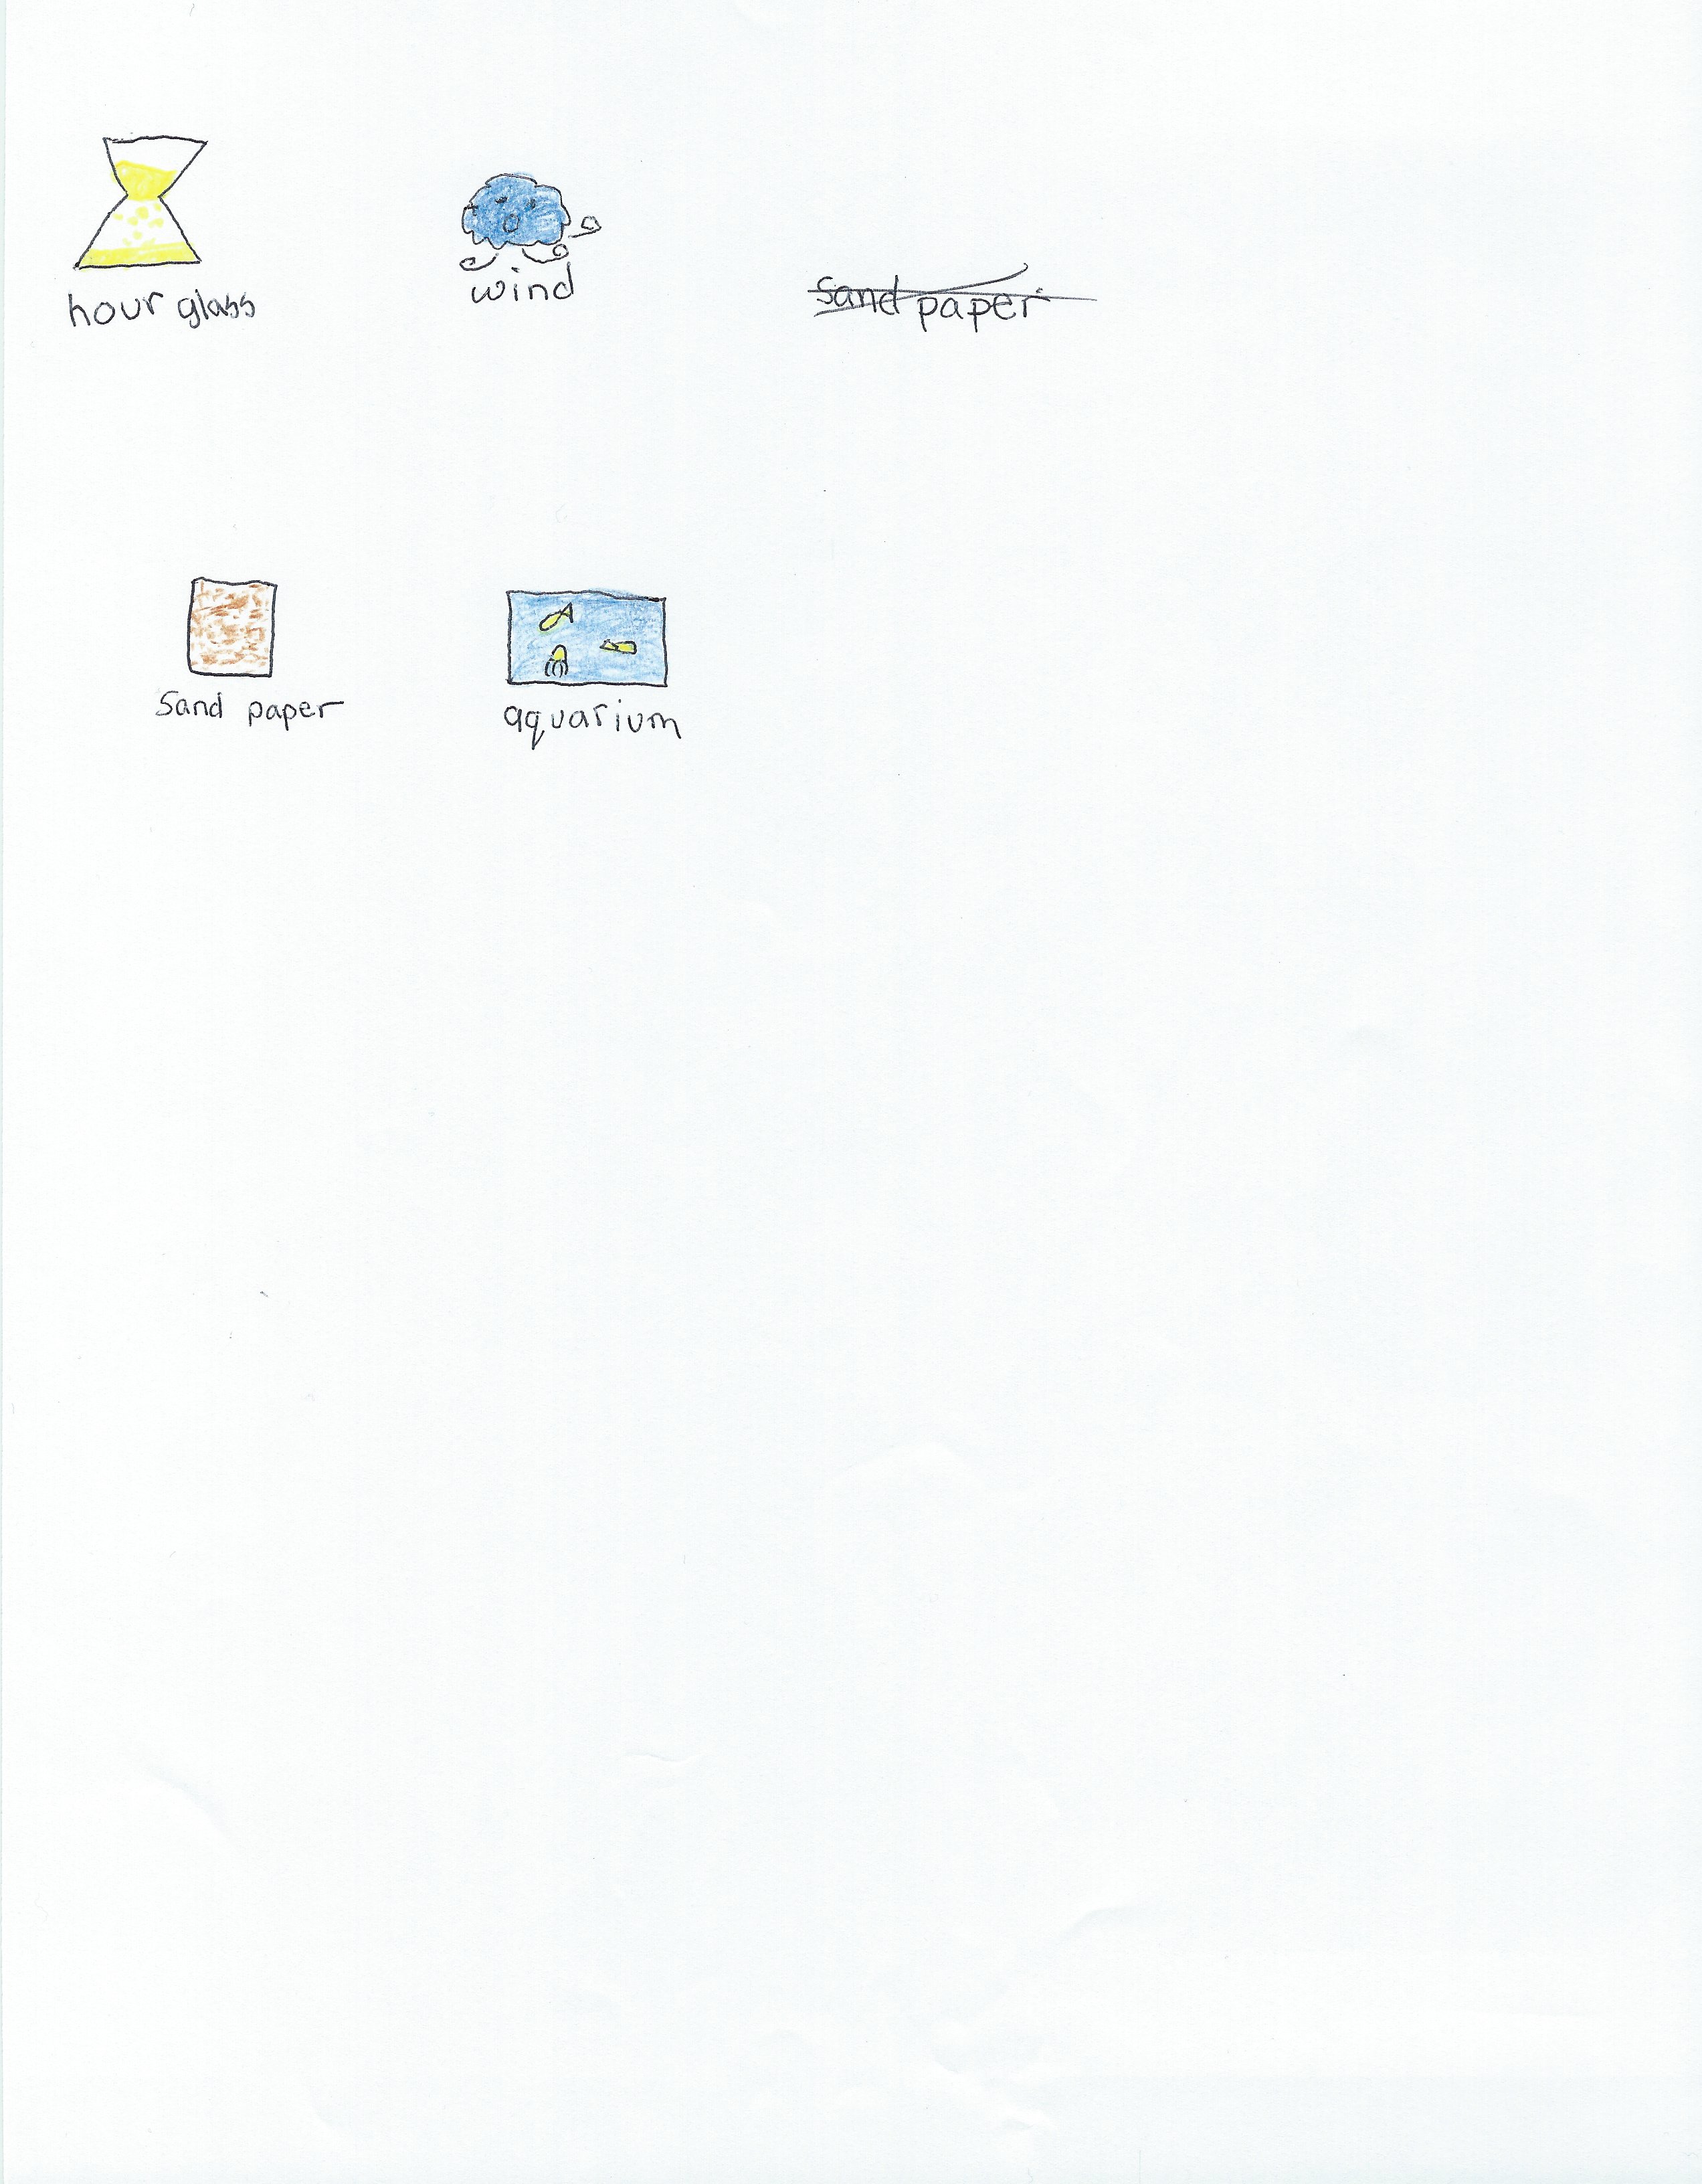 hour glass
wind
sand paper
sand paper
aquarium